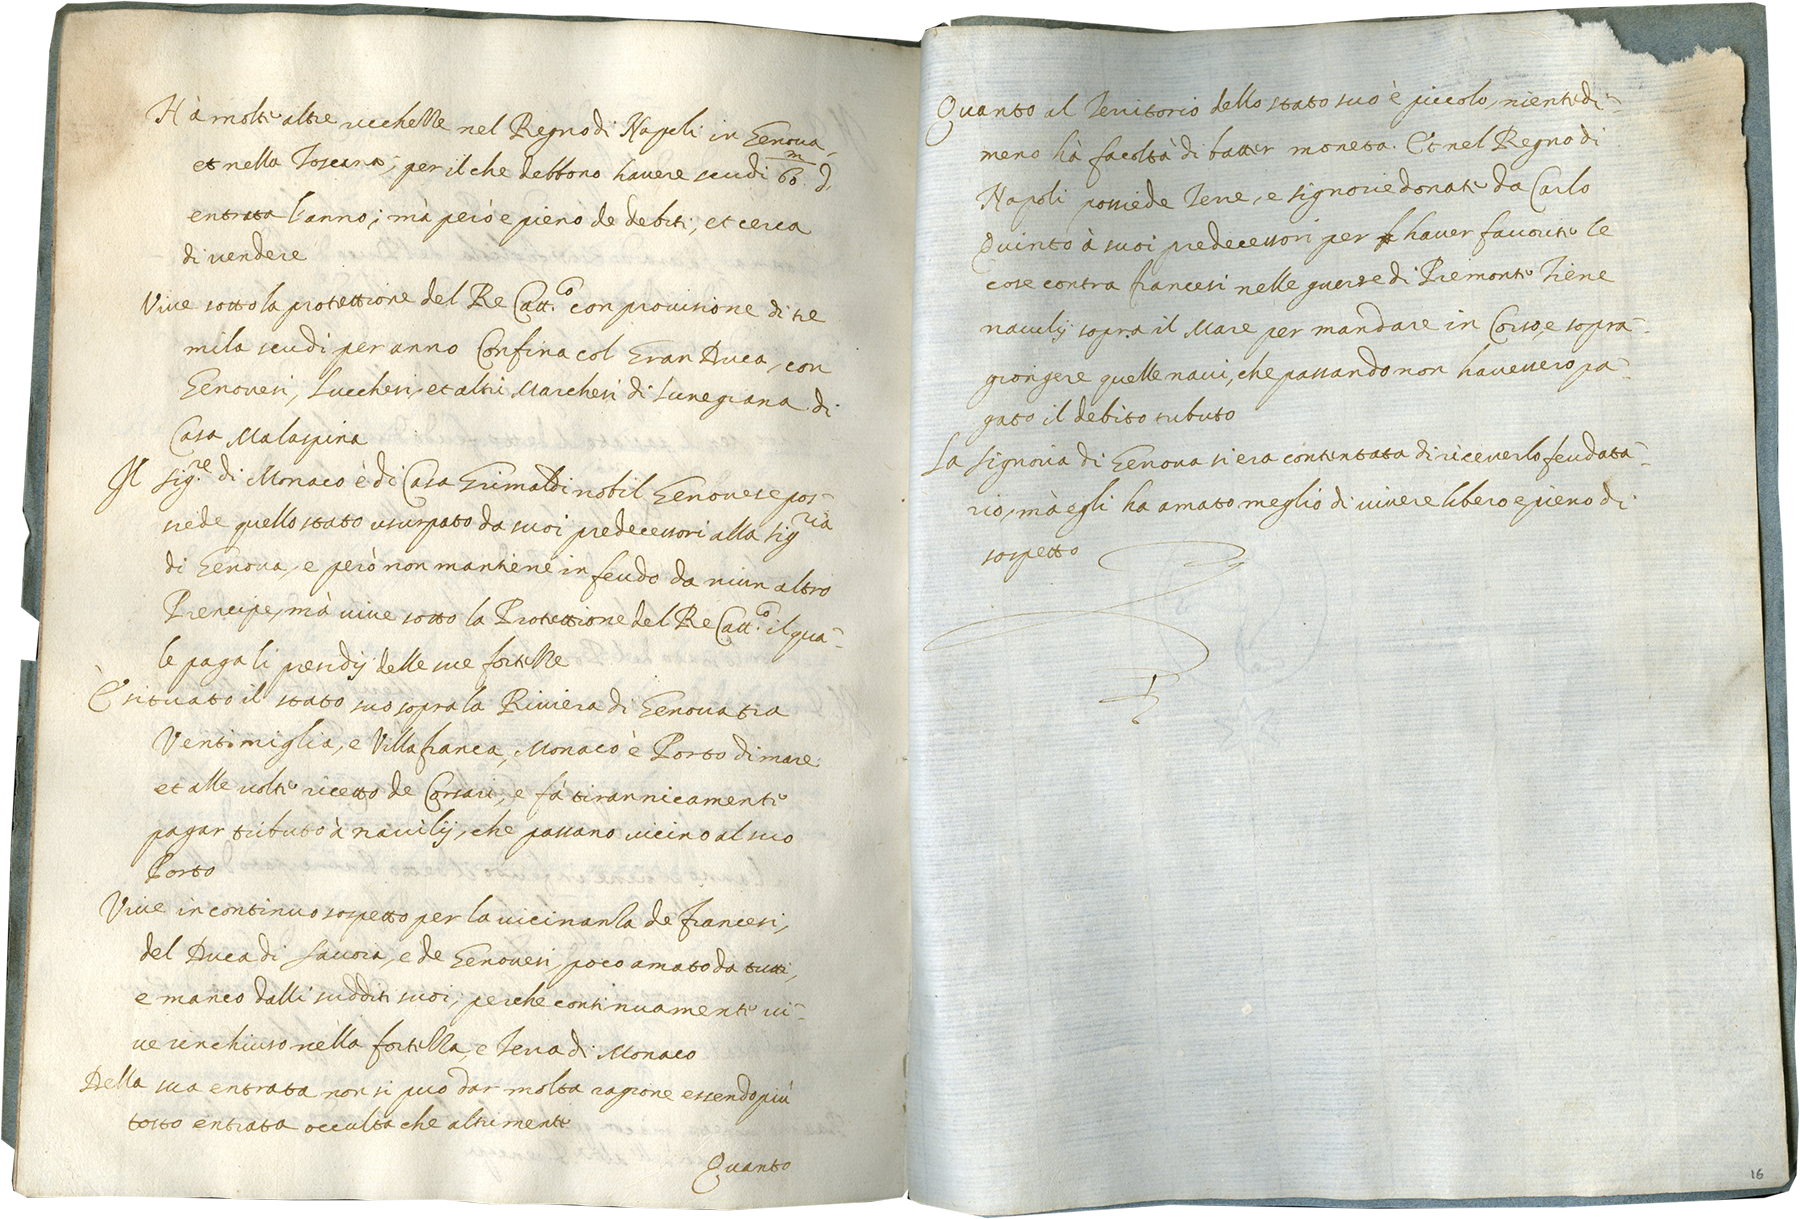 Hà molte altre ricchezze nel Regno di Napoli in Genova,
et nella Toscana, per il che debbono havere scudi 60.m d'
entrata l'anno; mà però e pieno de debiti, et cerca
di vendere
Vive sotto la protettione del Re Catt.co con provisione di tre
mila scudi per anno Confina col Gran Duca, con
Genovesi, Lucchesi, et altri Marchesi di Lunegiana di
Casa Malaspina
Il Sig.re di Monaco è di Casa Grimaldi nobil Genovese pos-
siede quello stato usurpato da suoi predecessori alla Sig.ria
di Genova, e però non mantiene in feudo da niun altro
Prencipe, mà vive sotto la Protettione del Re Catt.co il qua-
le paga li presidij delle sue fortezze
È situato il stato suo sopra la Riviera di Genova tra
Ventimiglia, e Villafranca, Monaco è Porto di mare
et alle volte ricetto de Corsari, e fà tirannicamente
pagar tributo à navilij, che passano vicino al suo
Porto
Vive in continuo sospetto per la vicinanza de francesi,
del Duca di Savoia, e de Genovesi, poco amato da tutti,
e manco dalli sudditi suoi, perche continuamente vi-
ve rinchiuso nella fortezza, e Terra di Monaco
Della sua entrata non si puo dar molta ragione essendo più
tosto entrata occulta che altrimente
Quanto
Quanto al Territorio dello stato suo è piccolo, nientedi-
meno hà facoltà di batter moneta. Et nel Regno di
Napoli possiede Terre, e signorie donate da Carlo
Quinto à suoi predecessori per haver favorite le
cose contra francesi nelle guerre di Piemonte Tiene
navilij sopra il Mare per mandare in Corso, e sopra-
giongere quelle navi, che passando non havessero pa-
gato il debito tributo
La Signoria di Genova si era contentata di riceverlo feudata-
rio, mà egli ha amato meglio di vivere libero e pieno di
sospetto
16